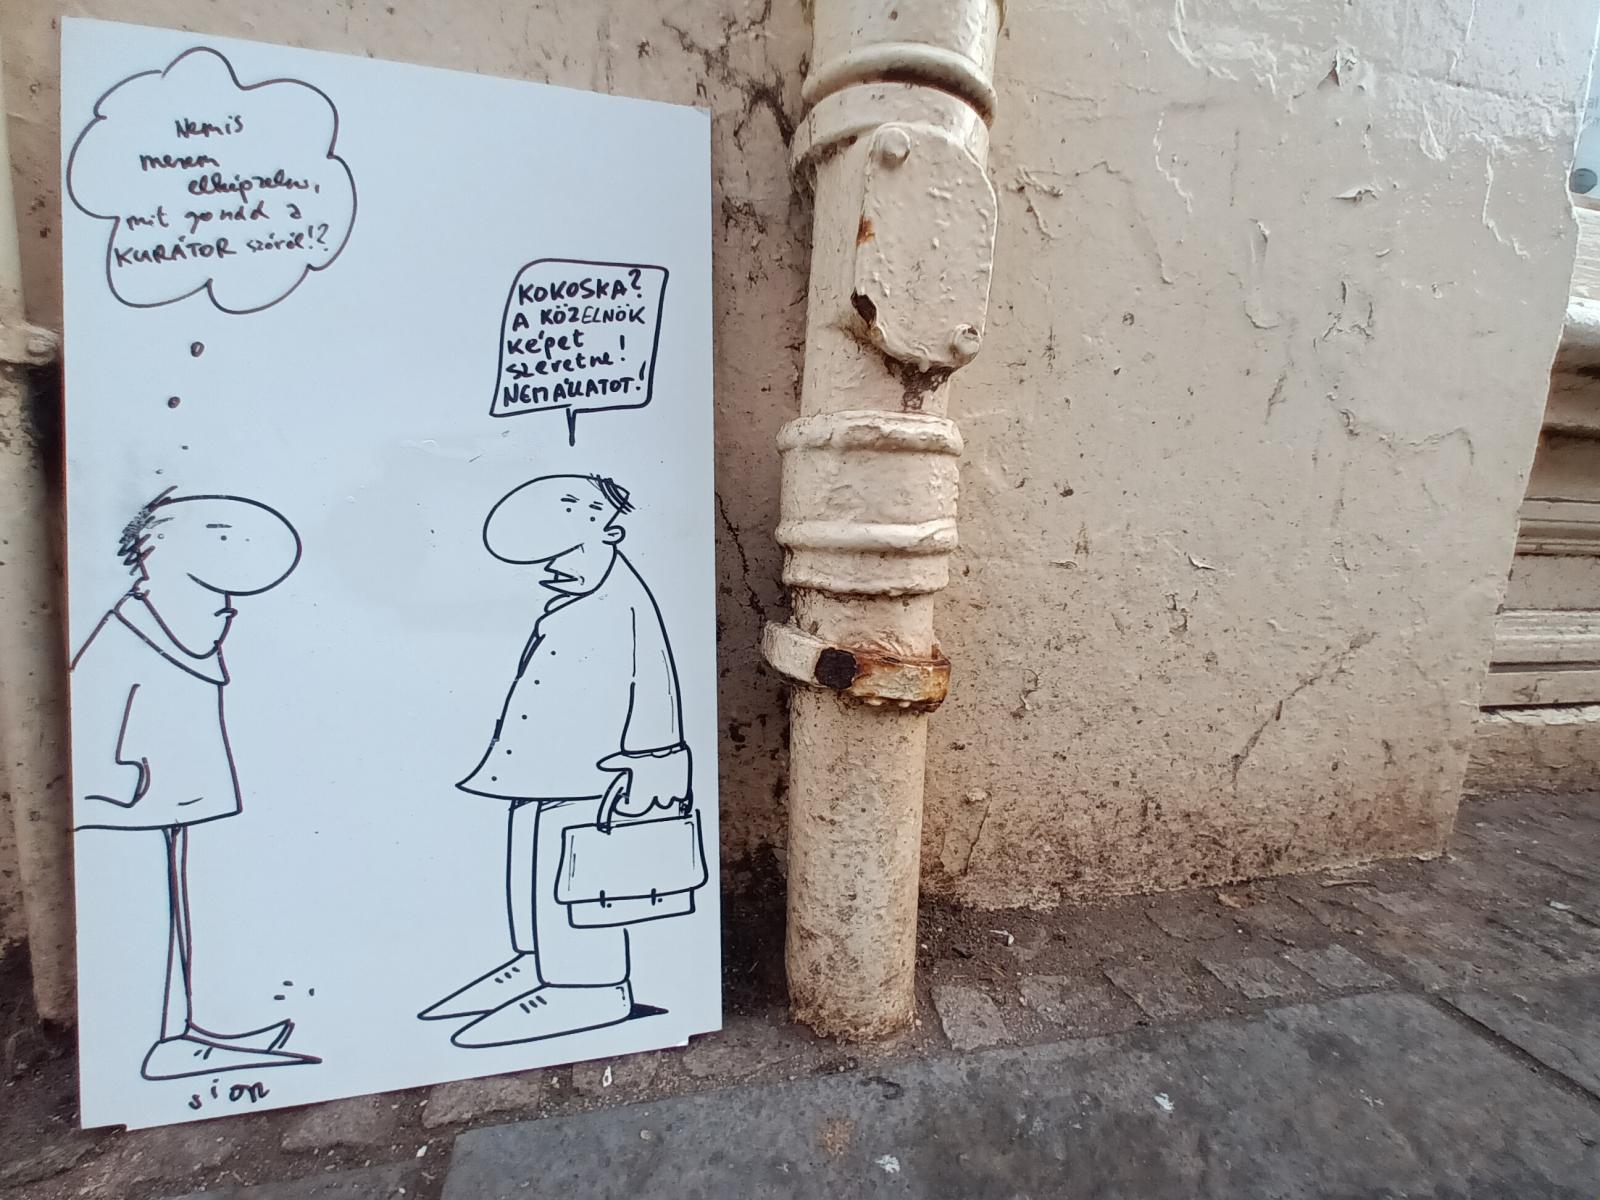 Nem is
merem
elképzelni,
mit gondol a
KURÁTOR szóról!?
KOKOSKA?
A KÖZELNÖK
képet
szeretne!
NEM ÁLLATOT!
sion